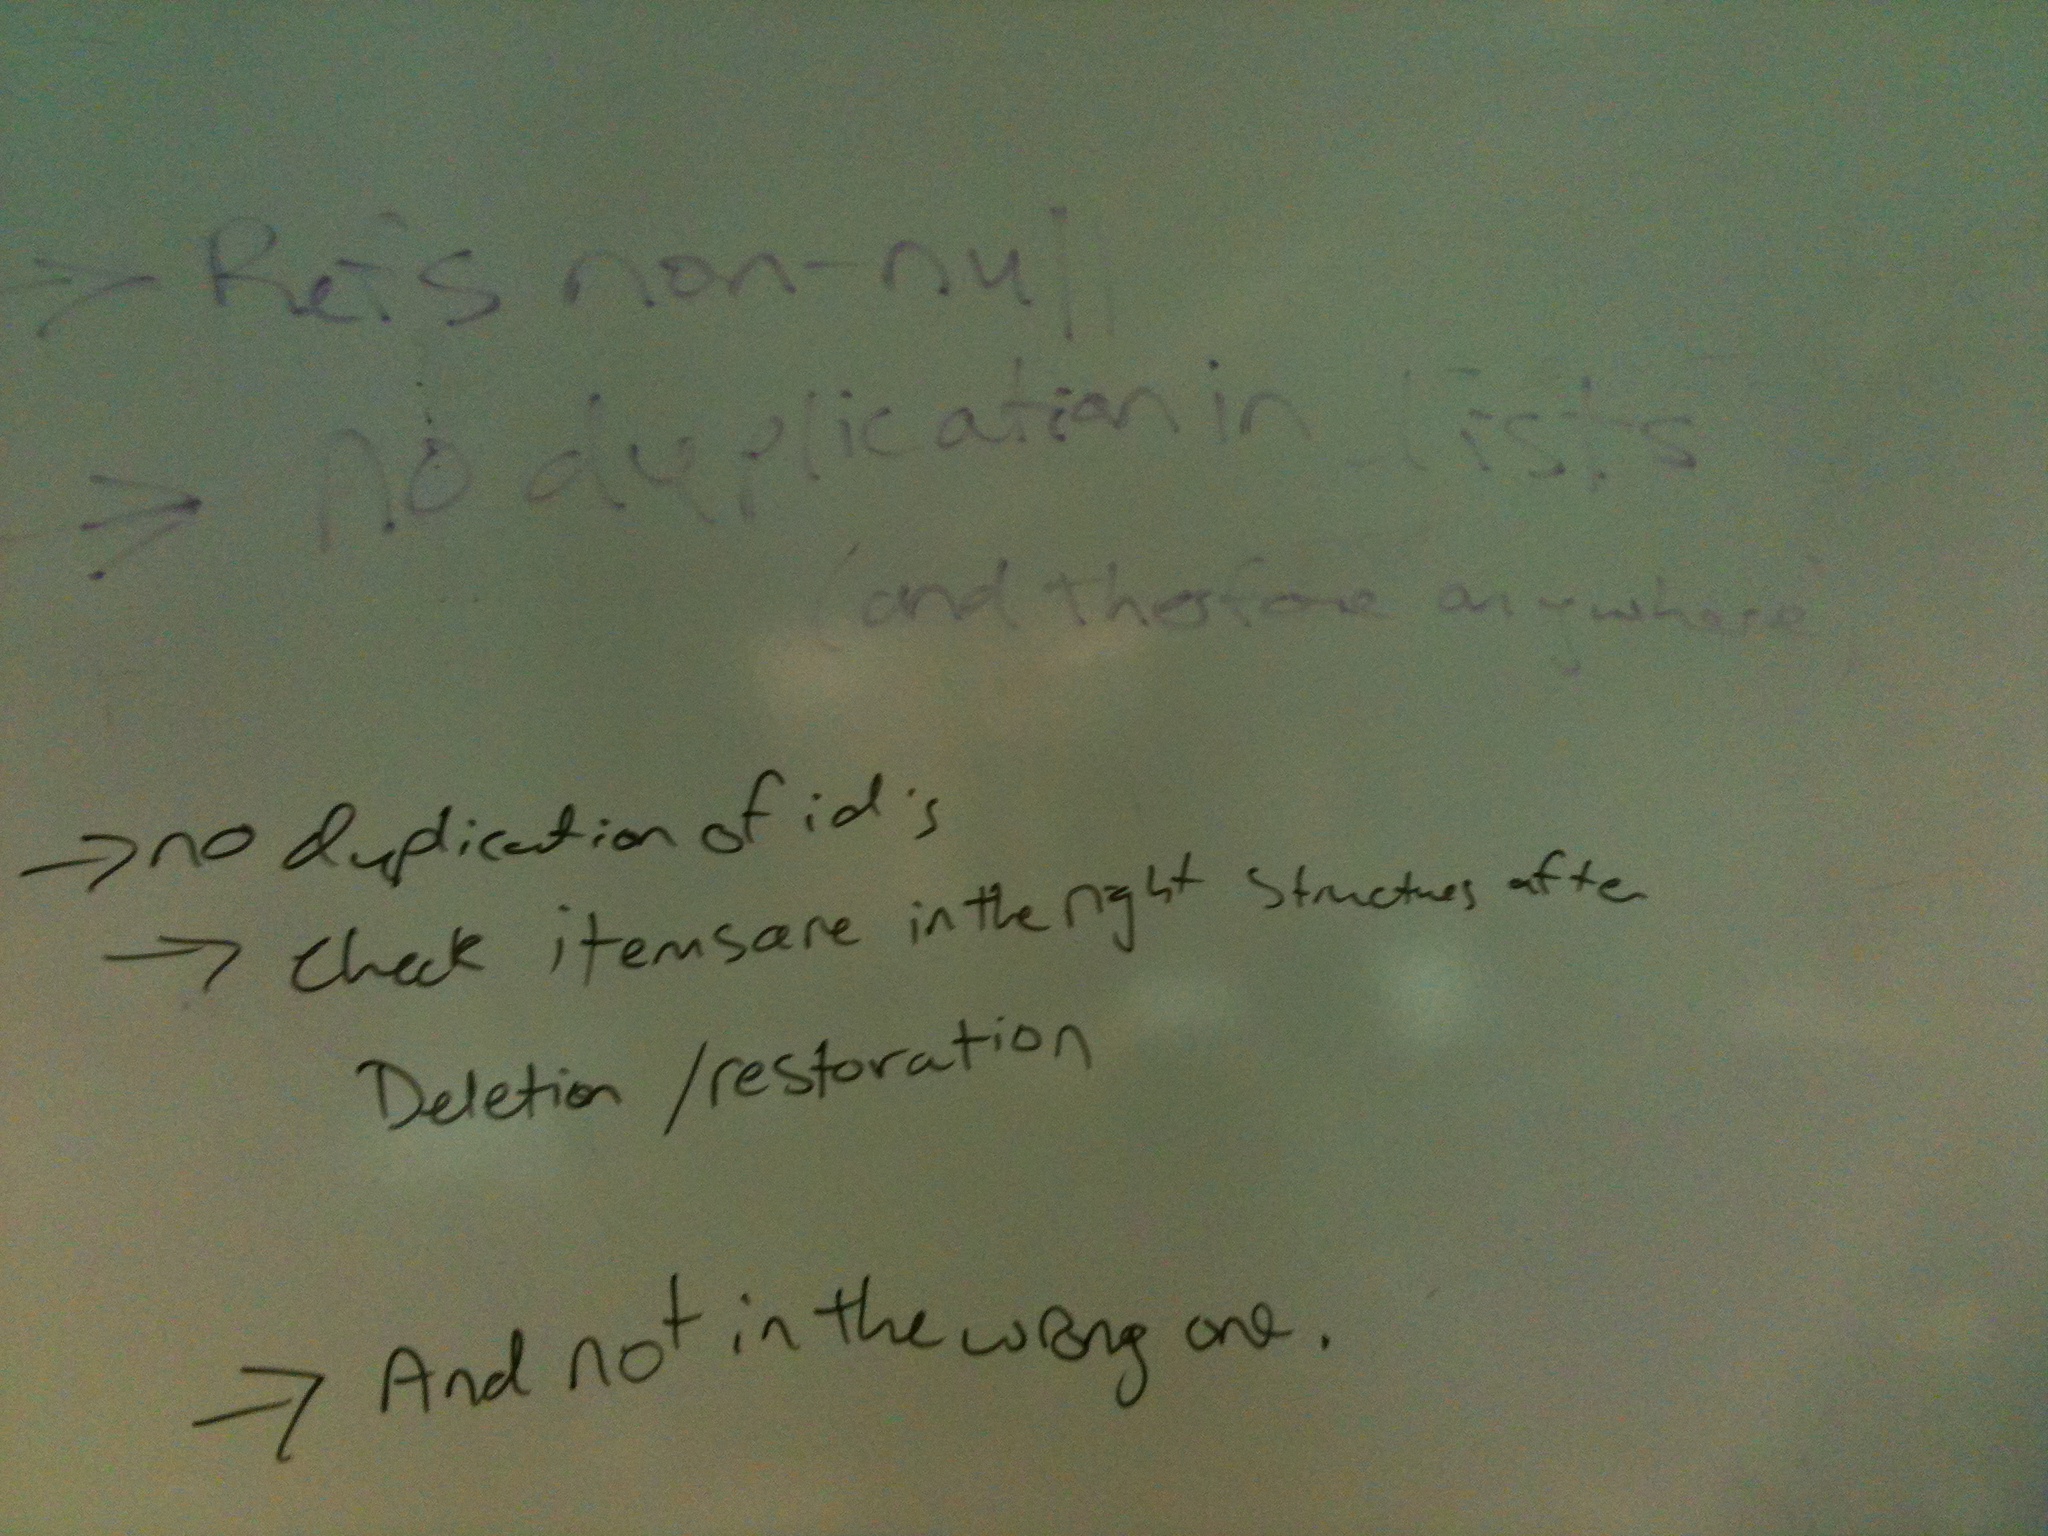 → Refs non-null
→ no duplication in lists
(and therefore anywhere)
→ no duplication of id's
→ Check items are in the right structures after
Deletion / restoration
→ And not in the wrong one.